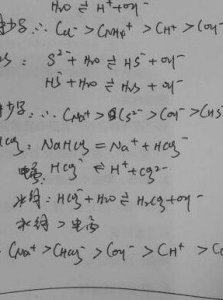 H₂O ⇌ H⁺+OH⁻
∴ C > C > CH⁺ > COH⁻
S²⁻ + H₂O ⇌ HS⁻ + OH⁻
HS⁻ + H₂O ⇌ H₂S + OH⁻
∴ CNa⁺ > CS²⁻ > COH⁻ > CHS⁻
NaHCO₃ = Na⁺ + HCO₃⁻
电离: HCO₃⁻ ⇌ H⁺ + CO₃²⁻
水解: HCO₃⁻ + H₂O ⇌ H₂CO₃ + OH⁻
水解 > 电离
CNa⁺ > CHCO₃⁻ > COH⁻ > CH⁺ >